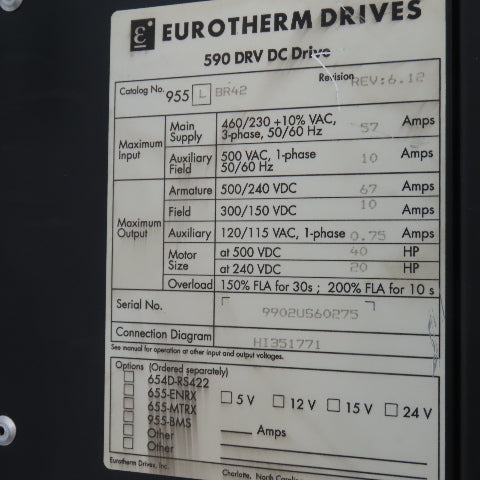 EUROTHERM DRIVES
590 DRV DC Drive
Catalog No. 955 L BR42 Revision REV:6.12
Maximum Input
Main Supply 460/230 +10% VAC, 3-phase, 50/60 Hz 57 Amps
Auxiliary Field 500 VAC, 1-phase 50/60 Hz 10 Amps
Maximum Output
Armature 500/240 VDC 67 Amps
Field 300/150 VDC 10 Amps
Auxiliary 120/115 VAC, 1-phase 0.75 Amps
Motor Size at 500 VDC 40 HP
at 240 VDC 20 HP
Overload 150% FLA for 30s ; 200% FLA for 10 s
Serial No. 9902US60275
Connection Diagram HI351771
See manual for operation at other input and output voltages.
Options (Ordered separately)
654D-RS422
655-ENRX
655-MTRX
955-BMS
Other
Other
5 V 12 V 15 V 24 V
Amps
Eurotherm Drives, Inc.
Charlotte, North Carolina